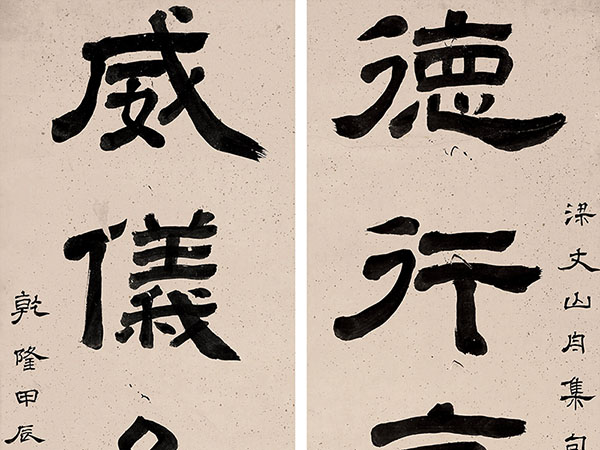 梁丈山自集句
德行
威儀
乾隆甲辰